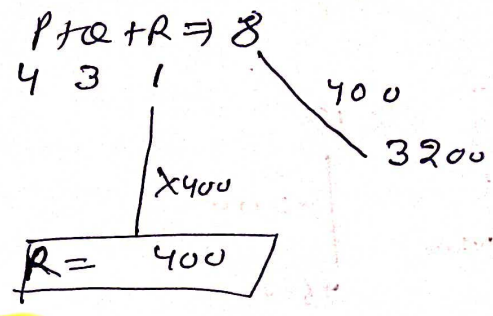 P+Q+R => 8
4 3 1
400
3200
X400
R = 400